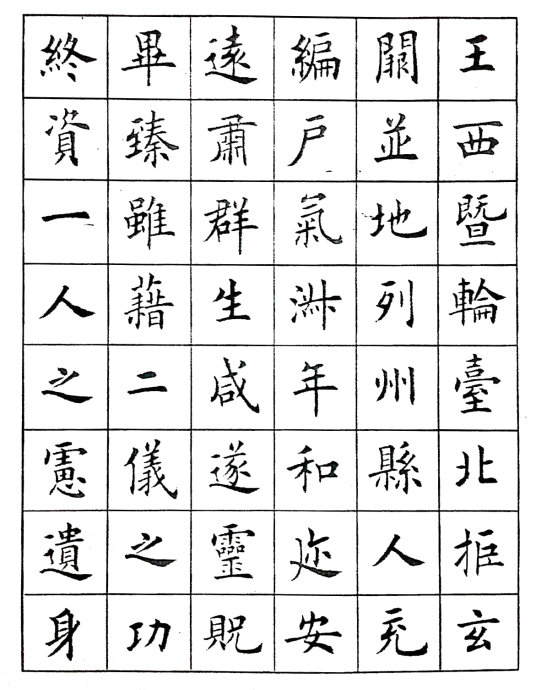 王西暨輪臺北拒玄
闕並地列州縣人充
編戶氣淑年和迩安
遠肅群生咸遂靈貺
畢臻雖藉二儀之功
終資一人之慮遺身